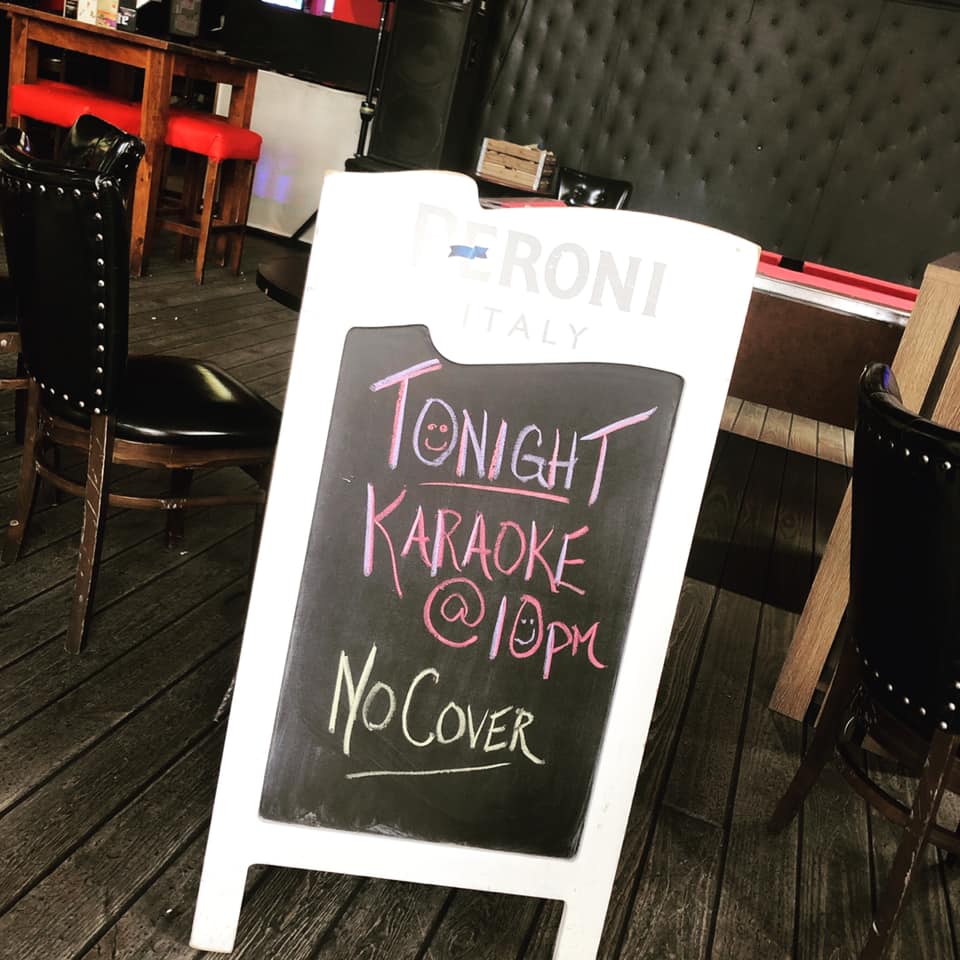 PERONI
ITALY
TONIGHT
KARAOKE
@10PM
NO COVER